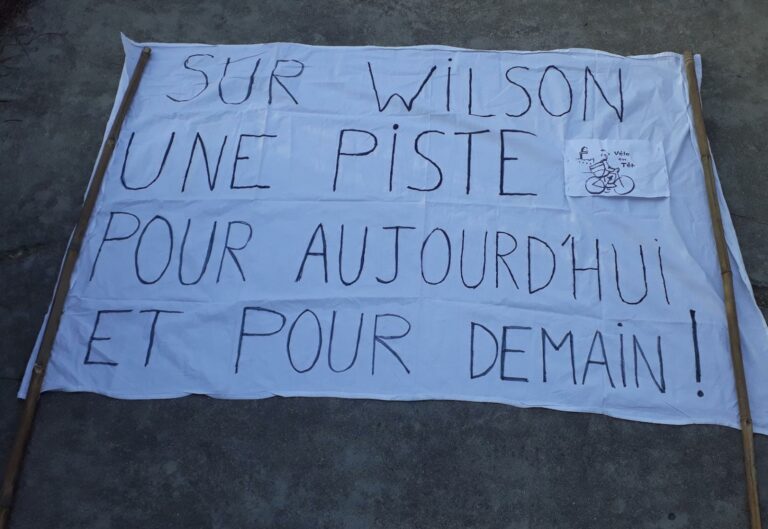 SUR WILSON
UNE PISTE
Vélo
en
Têt
POUR AUJOURD'HUI
ET POUR DEMAIN !